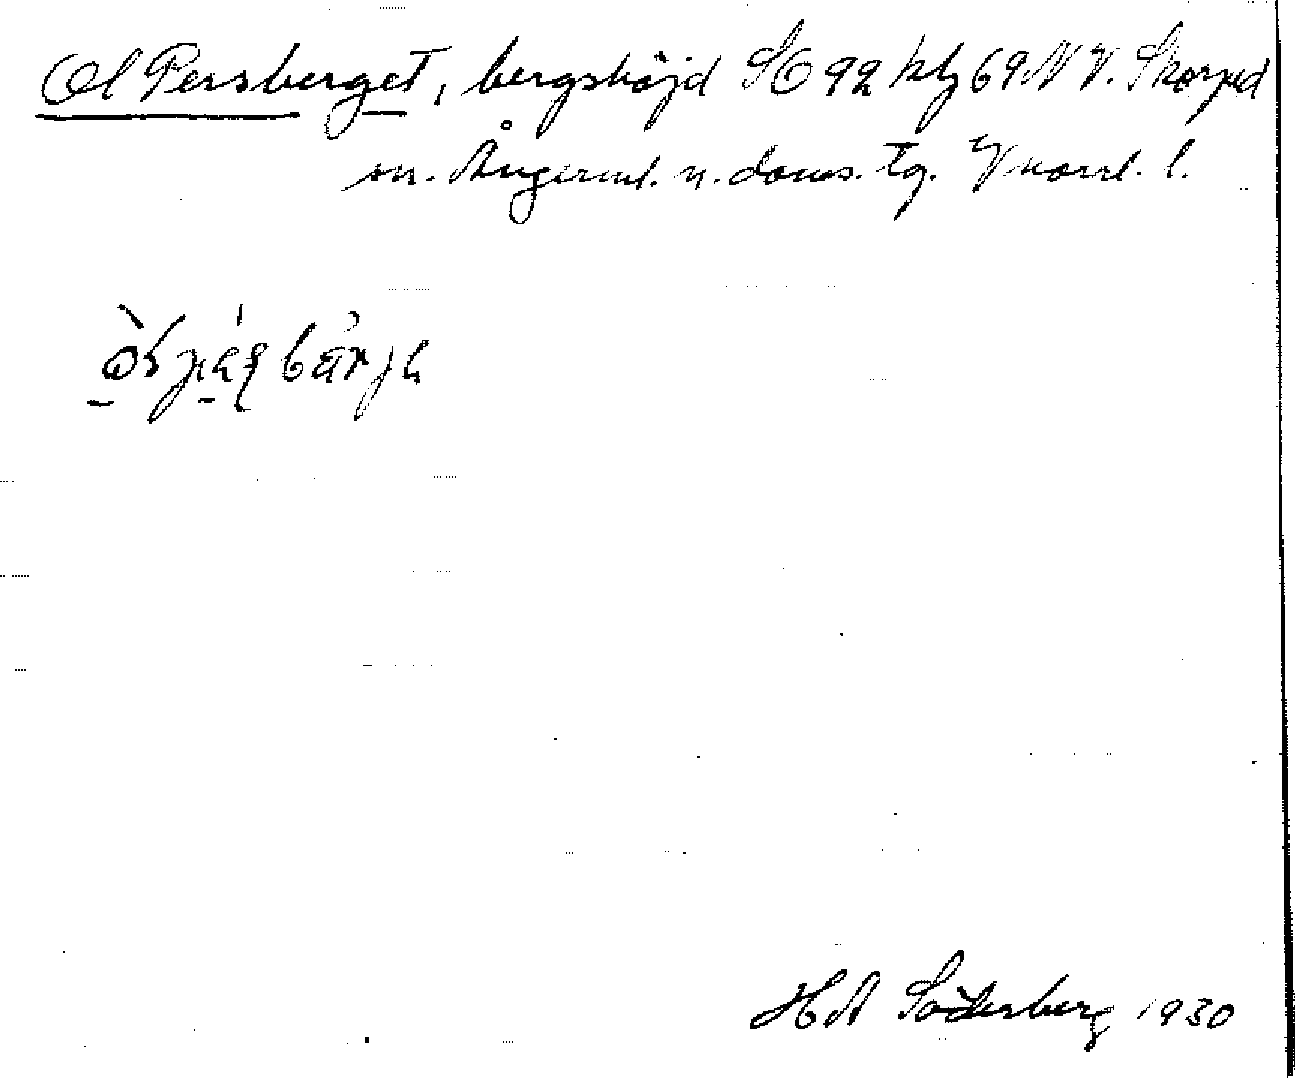 Ol Persberget, bergshöjd SO 92 blz 69 NV. Skorped
sn. Ångerml. n. doms. tg. Vnorrl. l.
H A Söderberg 1930